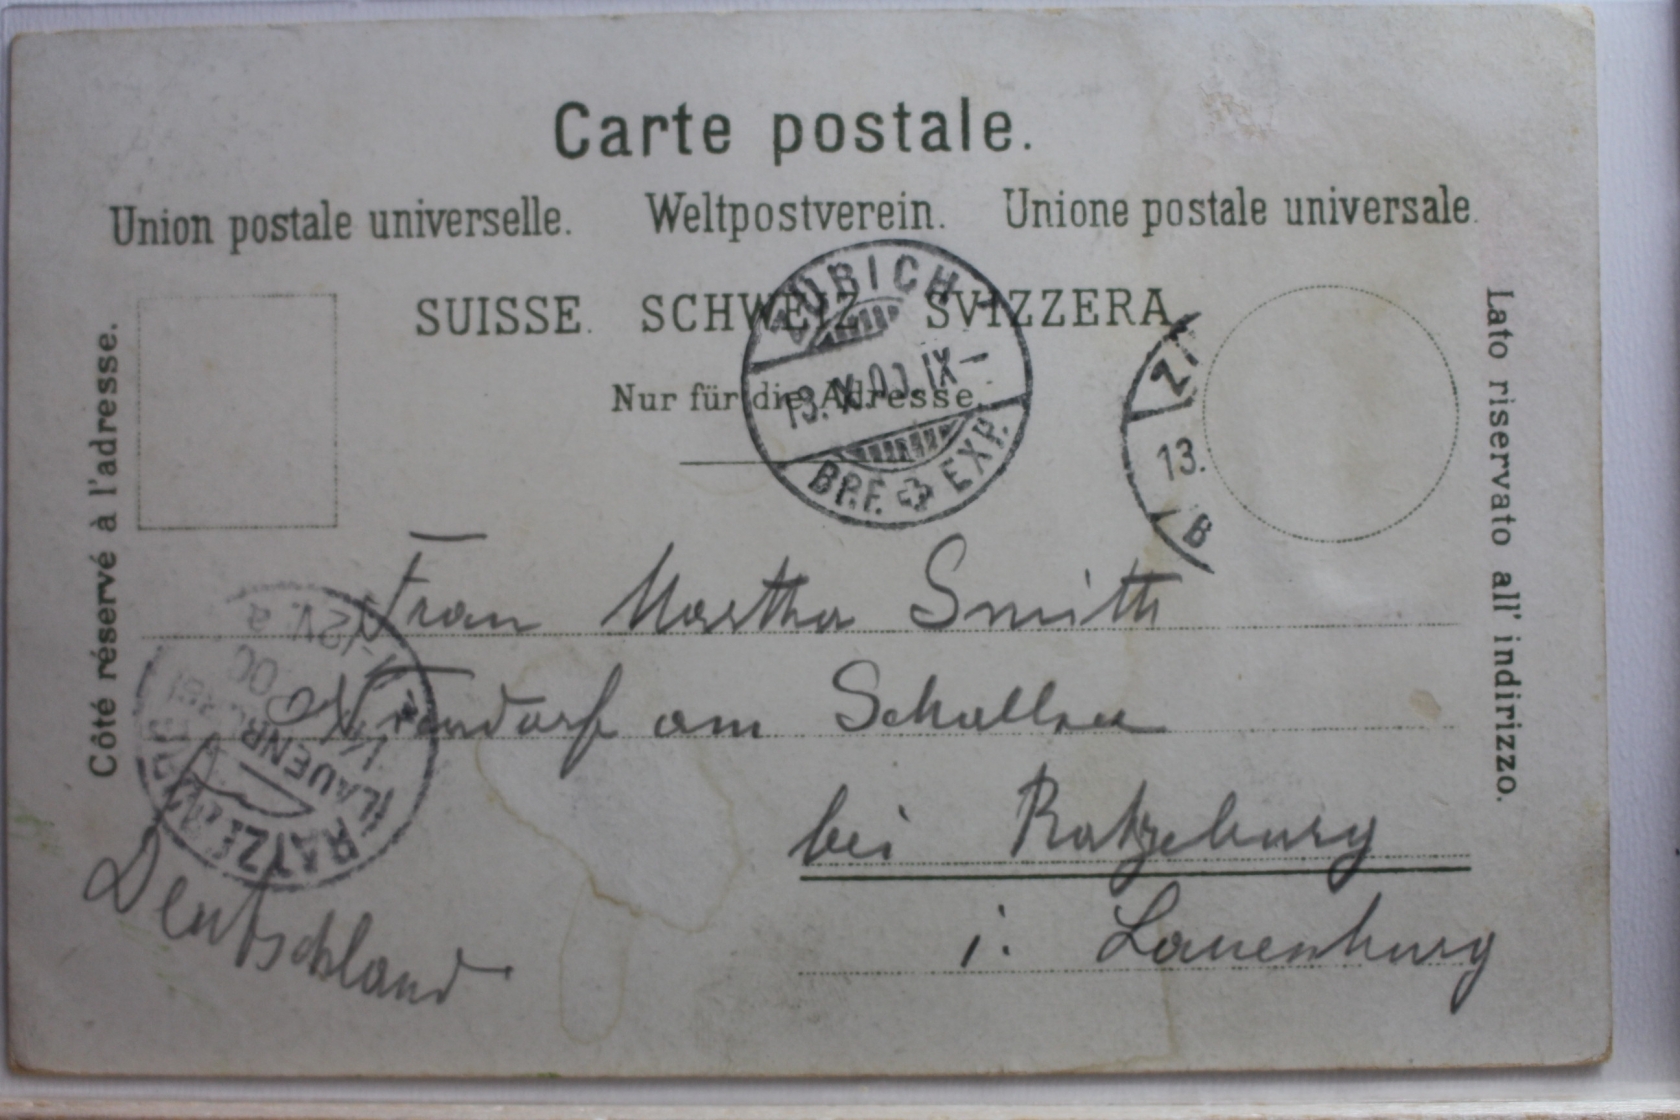 Carte postale.
Union postale universelle. Weltpostverein. Unione postale universale.
SUISSE. SCHWEIZ SVIZZERA
Nur für die Adresse.
Côté réservé à l'adresse.
Lato riservato all' indirizzo.
ZÜRICH
13. X. 00. IX-
BRF. EXP.
13.
B
Frau Martha Smith
am Schallsee
bei Ratzeburg
i. Lauenburg
Deutschland
RATZEBURG
LAUENB
00
12V. a